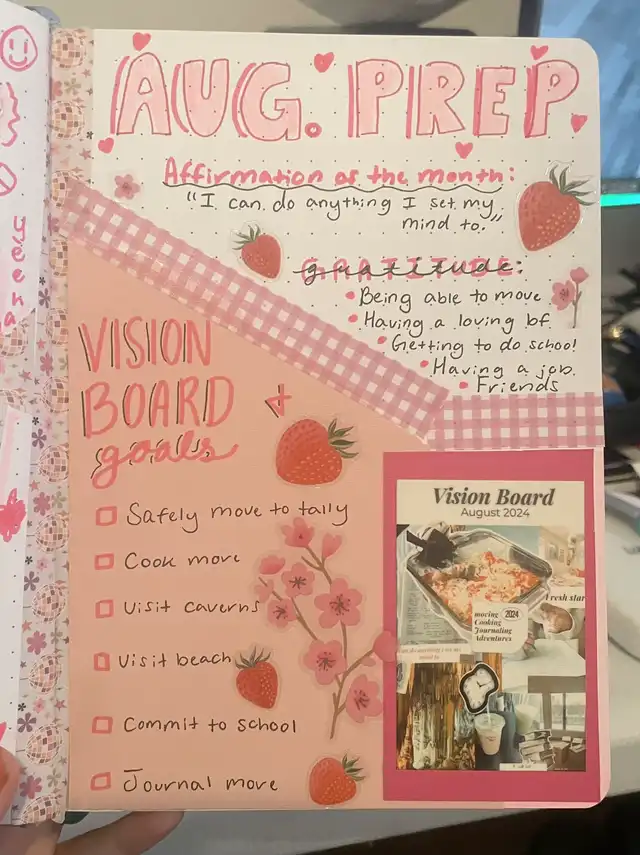 AUG. PREP
Affirmation of the month:
"I can do anything I set my
mind to."
gratitude:
Being able to move
Having a loving bf
Getting to do school
Having a job
Friends
VISION
BOARD +
goals
Safely move to tally
Cook more
Visit caverns
Visit beach
Commit to school
Journal more
Vision Board
August 2024
Fresh star
moving
Cooking
Journaling
Adventures
2024
yeena